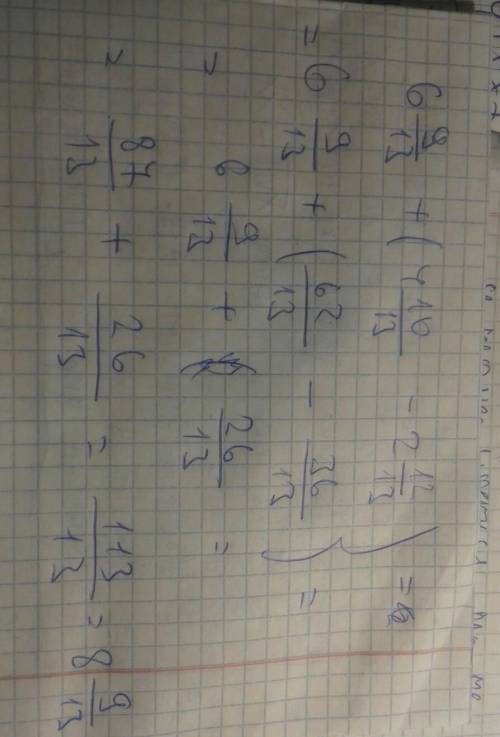 6 9/13 + (4 10/13 - 2 12/13) =
= 6 9/13 + (62/13 - 36/13) =
= 6 9/13 + 26/13 =
= 87/13 + 26/13 = 113/13 = 8 9/13